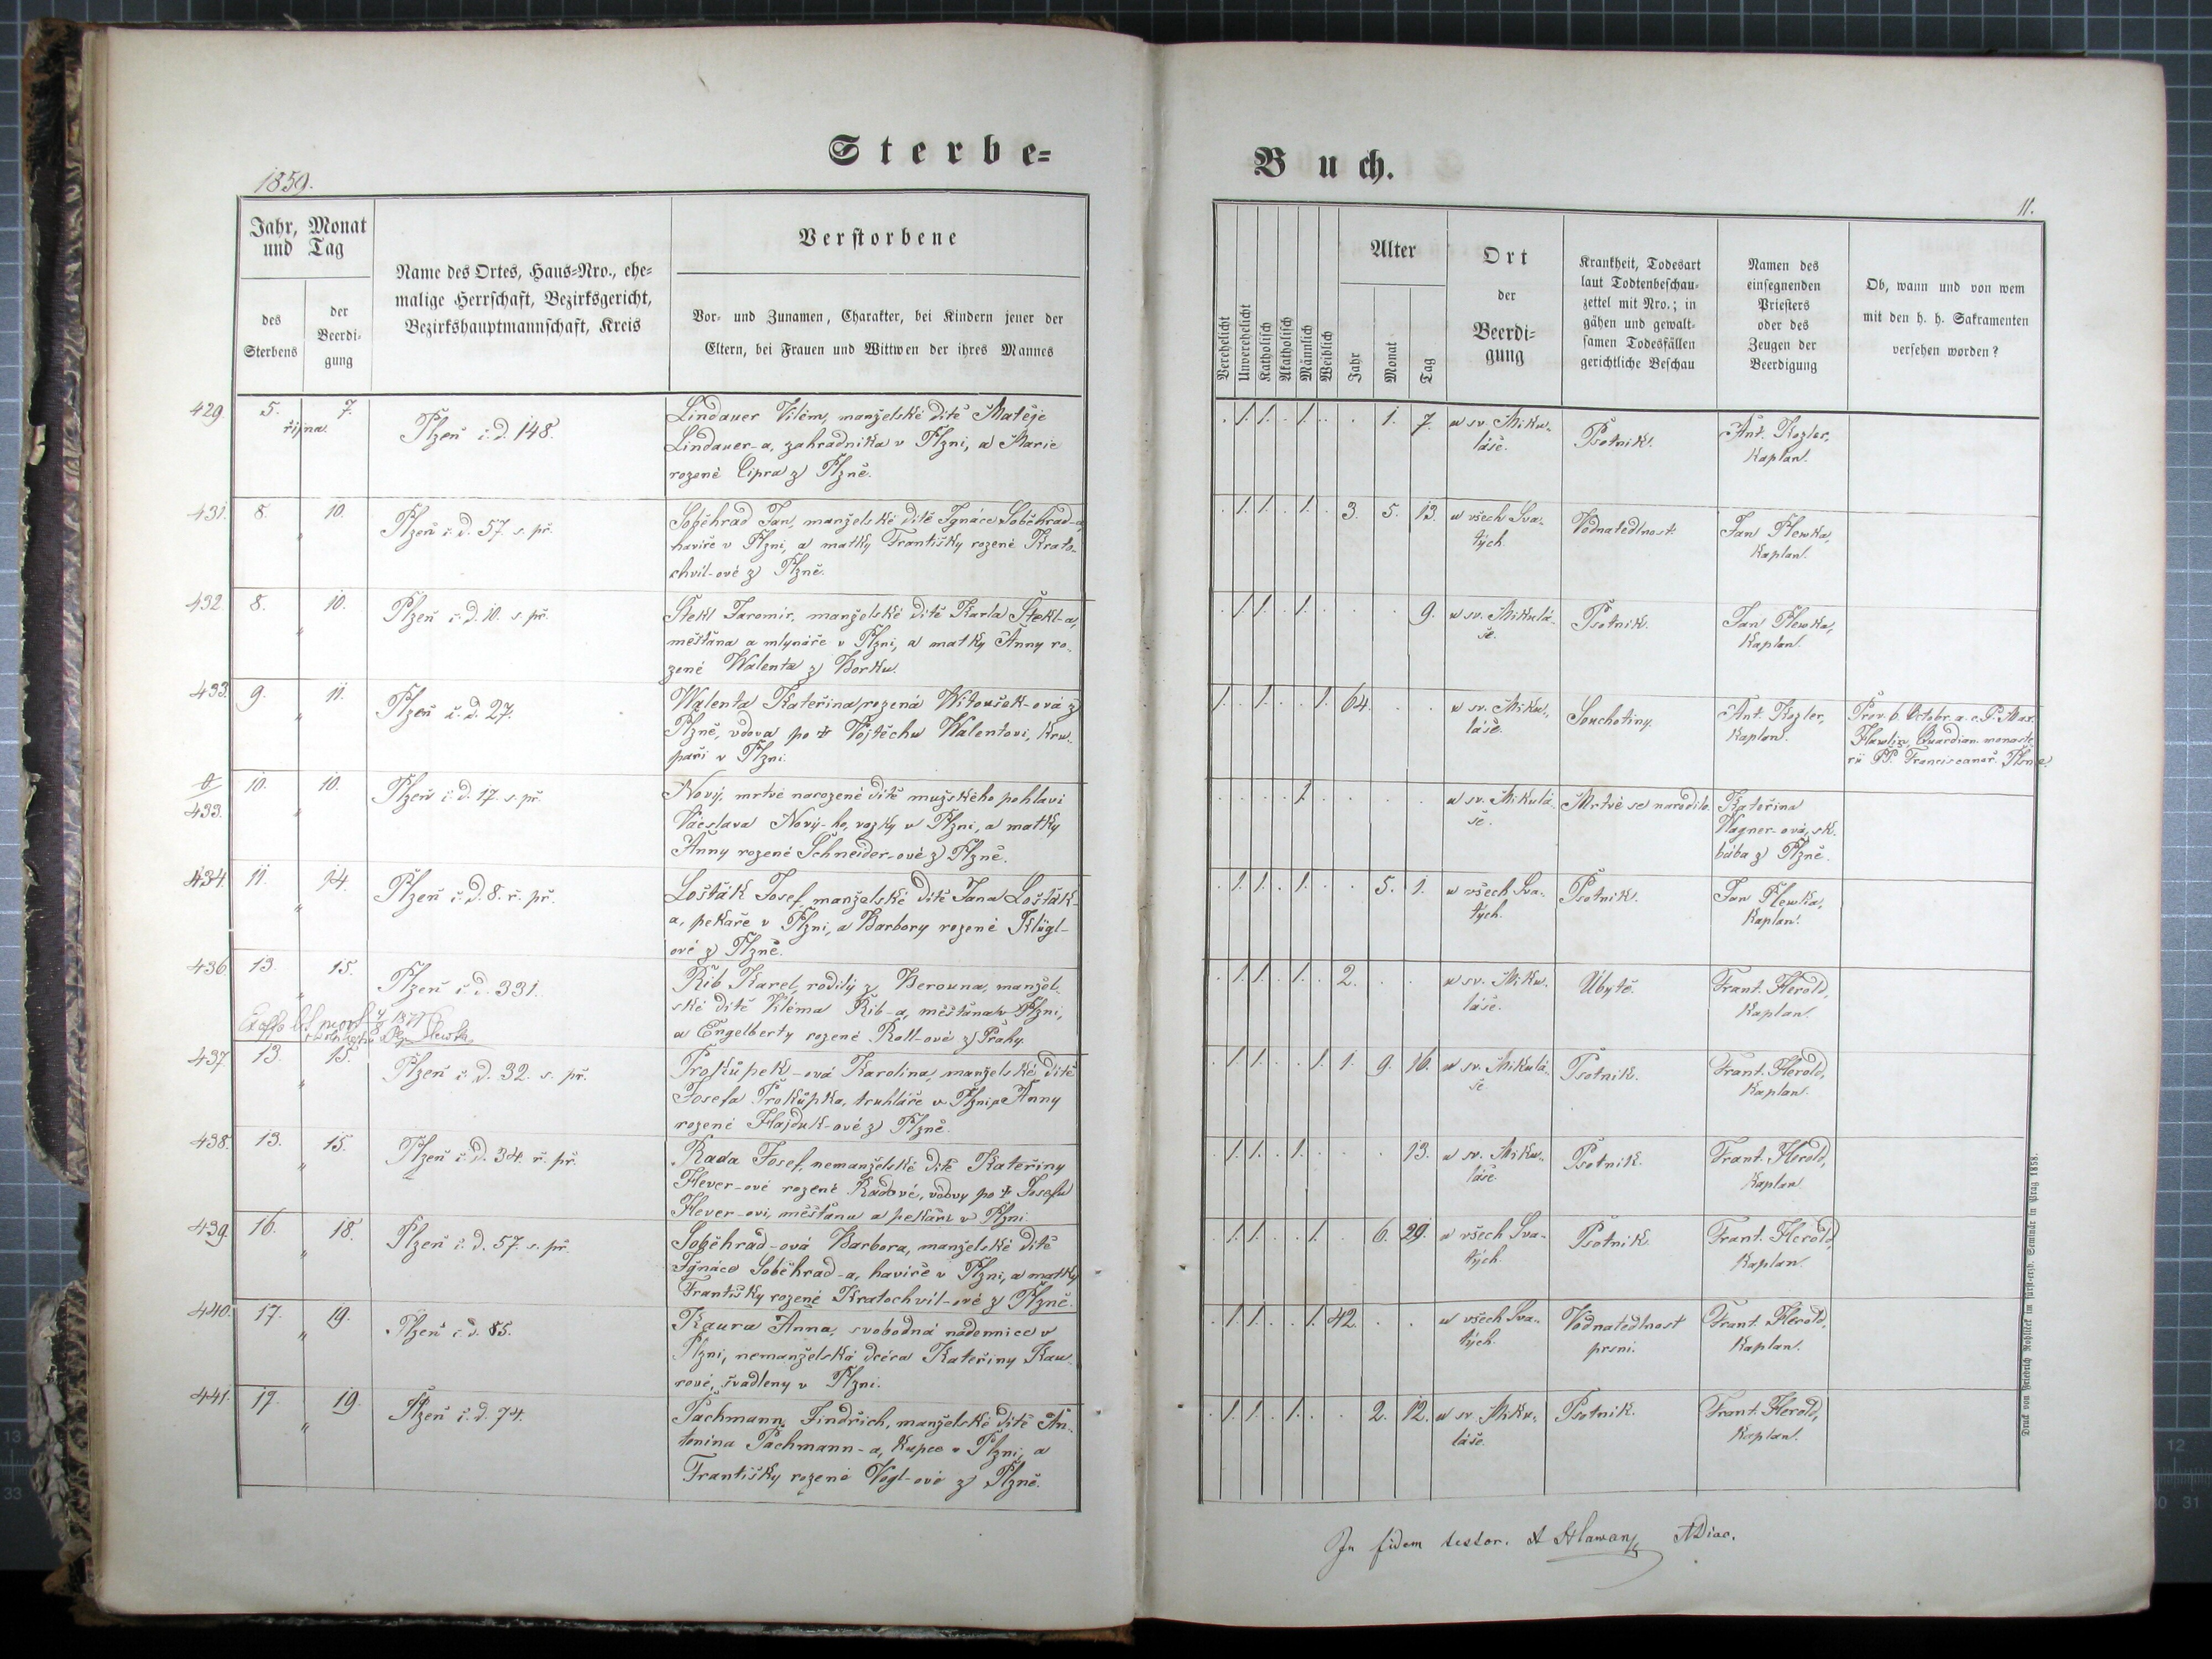 Sterbe=
1859.
Jahr, Monat
und Tag
des
Sterbens
der
Beerdi=
gung
Name des Ortes, Haus=Nro., ehe=
malige Herrschaft, Bezirksgericht,
Bezirkshauptmannschaft, Kreis
Verstorbene
Vor= und Zunamen, Charakter, bei Kindern jener der
Eltern, bei Frauen und Wittwen der ihres Mannes
429. 5. 7.
října.
Plzeň č. d. 148.
Lindauer Vilém, manželské dítě Matěje
Lindauer-a, zahradníka v Plzni, a Marie
rozené Cipra z Plzně.
431. 8. 10.
"
Plzeň č. d. 57. s. př.
Soběhrad Jan, manželské dítě Ignáce Soběhrad-a,
havíře v Plzni, a matky Františky rozené Krato-
chvil-ové z Plzně.
432. 8. 10.
"
Plzeň č. d. 10. s. př.
Štekl Jaromír, manželské dítě Karla Štekl-a,
měšťana a mlynáře v Plzni, a matky Anny ro-
zené Walenta z Borku.
433. 9. 11.
"
Plzeň č. d. 27.
Walenta Kateřina, rozená Witoušek-ová z
Plzně, vdova po † Vojtěchu Walentovi, kru-
paři v Plzni.
0/433. 10. 10.
"
Plzeň č. d. 17. s. př.
Nový, mrtvě narozené dítě mužského pohlaví
Václava Nový-ho, vozky v Plzni, a matky
Anny rozené Schneider-ové z Plzně.
434. 11. 14.
"
Plzeň č. d. 8. ř. př.
Lošťák Josef, manželské dítě Jana Lošťák-
a, pekaře v Plzni, a Barbory rozené Klügl-
ové z Plzně.
436. 13. 15.
"
Plzeň č. d. 331.
Rib Karel, rodilý z Berouna, manžel-
ské dítě Viléma Rib-a, měšťana v Plzni,
a Engelberty rozené Roll-ové z Prahy.
Ex offo
437. 13. 15.
"
Plzeň č. d. 32. s. př.
Prokůpek-ová Karolina, manželské dítě
Josefa Prokůpka, truhláře v Plzni, a Anny
rozené Hajduk-ové z Plzně.
438. 13. 15.
"
Plzeň č. d. 34. ř. př.
Rada Josef, nemanželské dítě Kateřiny
Hever-ové rozené Radové, vdovy po † Josefu
Hever-ovi, měšťanu a pekaři v Plzni.
439. 16. 18.
"
Plzeň č. d. 57. s. př.
Soběhrad-ová Barbora, manželské dítě
Ignáce Soběhrad-a, havíře v Plzni, a matky
Františky rozené Kratochvil-ové z Plzně.
440. 17. 19.
"
Plzeň č. d. 85.
Kaura Anna, svobodná nádennice v
Plzni, nemanželská dcéra Kateřiny Kau-
rové, švadleny v Plzni.
441. 17. 19.
"
Plzeň č. d. 74.
Pachmann Jindřich, manželské dítě An-
tonína Pachmann-a, kupce v Plzni, a
Františky rozené Vogl-ové z Plzně.
Buch.
11.
Verehelicht
Unverehelicht
Katholisch
Akatholisch
Männlich
Weiblich
Alter
Jahr
Monat
Tag
Ort
der
Beerdi=
gung
Krankheit, Todesart
laut Todtenbeschau=
zettel mit Nro.; in
gähen und gewalt=
samen Todesfällen
gerichtliche Beschau
Namen des
einsegnenden
Priesters
oder des
Zeugen der
Beerdigung
Ob, wann und von wem
mit den h. h. Sakramenten
versehen worden?
. 1. 1. . 1. . . 1. 7. u sv. Miku-
láše.
Psotník.
Ant. Kozler,
Kaplan.
. 1. 1. . 1. . 3. 5. 13. u všech Sva-
tých.
Vodnatedlnost.
Jan Plewka,
Kaplan.
. 1. 1. . 1. . . . 9. u sv. Mikulá-
še.
Psotník.
Jan Plewka,
Kaplan.
1. . 1. . . 1. 64. . . u sv. Miku-
láše.
Souchotiny.
Ant. Kozler,
Kaplan.
Prov. 6. Octobr. a. c. P. Max.
Hawlin, Quardian. monaste-
rii PP. Franciscanor. Plsnae.
. . . . 1. . . . . u sv. Mikulá-
še.
Mrtvé se narodilo.
Kateřina
Wagner-ová, zk.
bába z Plzně.
. 1. 1. . 1. . . 5. 1. u všech Sva-
tých.
Psotník.
Jan Plewka,
Kaplan.
. 1. 1. . 1. . 2. . . u sv. Miku-
láše.
Úbytě.
Frant. Herold,
Kaplan.
. 1. 1. . . 1. 1. 9. 16. u sv. Mikulá-
še
Psotník.
Frant. Herold,
Kaplan.
. 1. 1. . 1. . . . 13. u sv. Miku-
láše.
Psotník.
Frant. Herold,
Kaplan
. 1. 1. . . 1. . 6. 29. u všech Sva-
tých.
Psotník
Frant. Herold,
Kaplan.
. 1. 1. . . 1. 42. . . u všech Sva-
tých.
Vodnatedlnost
prsní.
Frant. Herold,
Kaplan.
. 1. 1. . 1. . . 2. 12. u sv. Miku-
láše.
Psotník.
Frant. Herold,
Kaplan.
In fidem testor. A Hlawan ADiac.
Druck von Friedrich Rohliček im fürst-erzb. Seminär in Prag 1858.